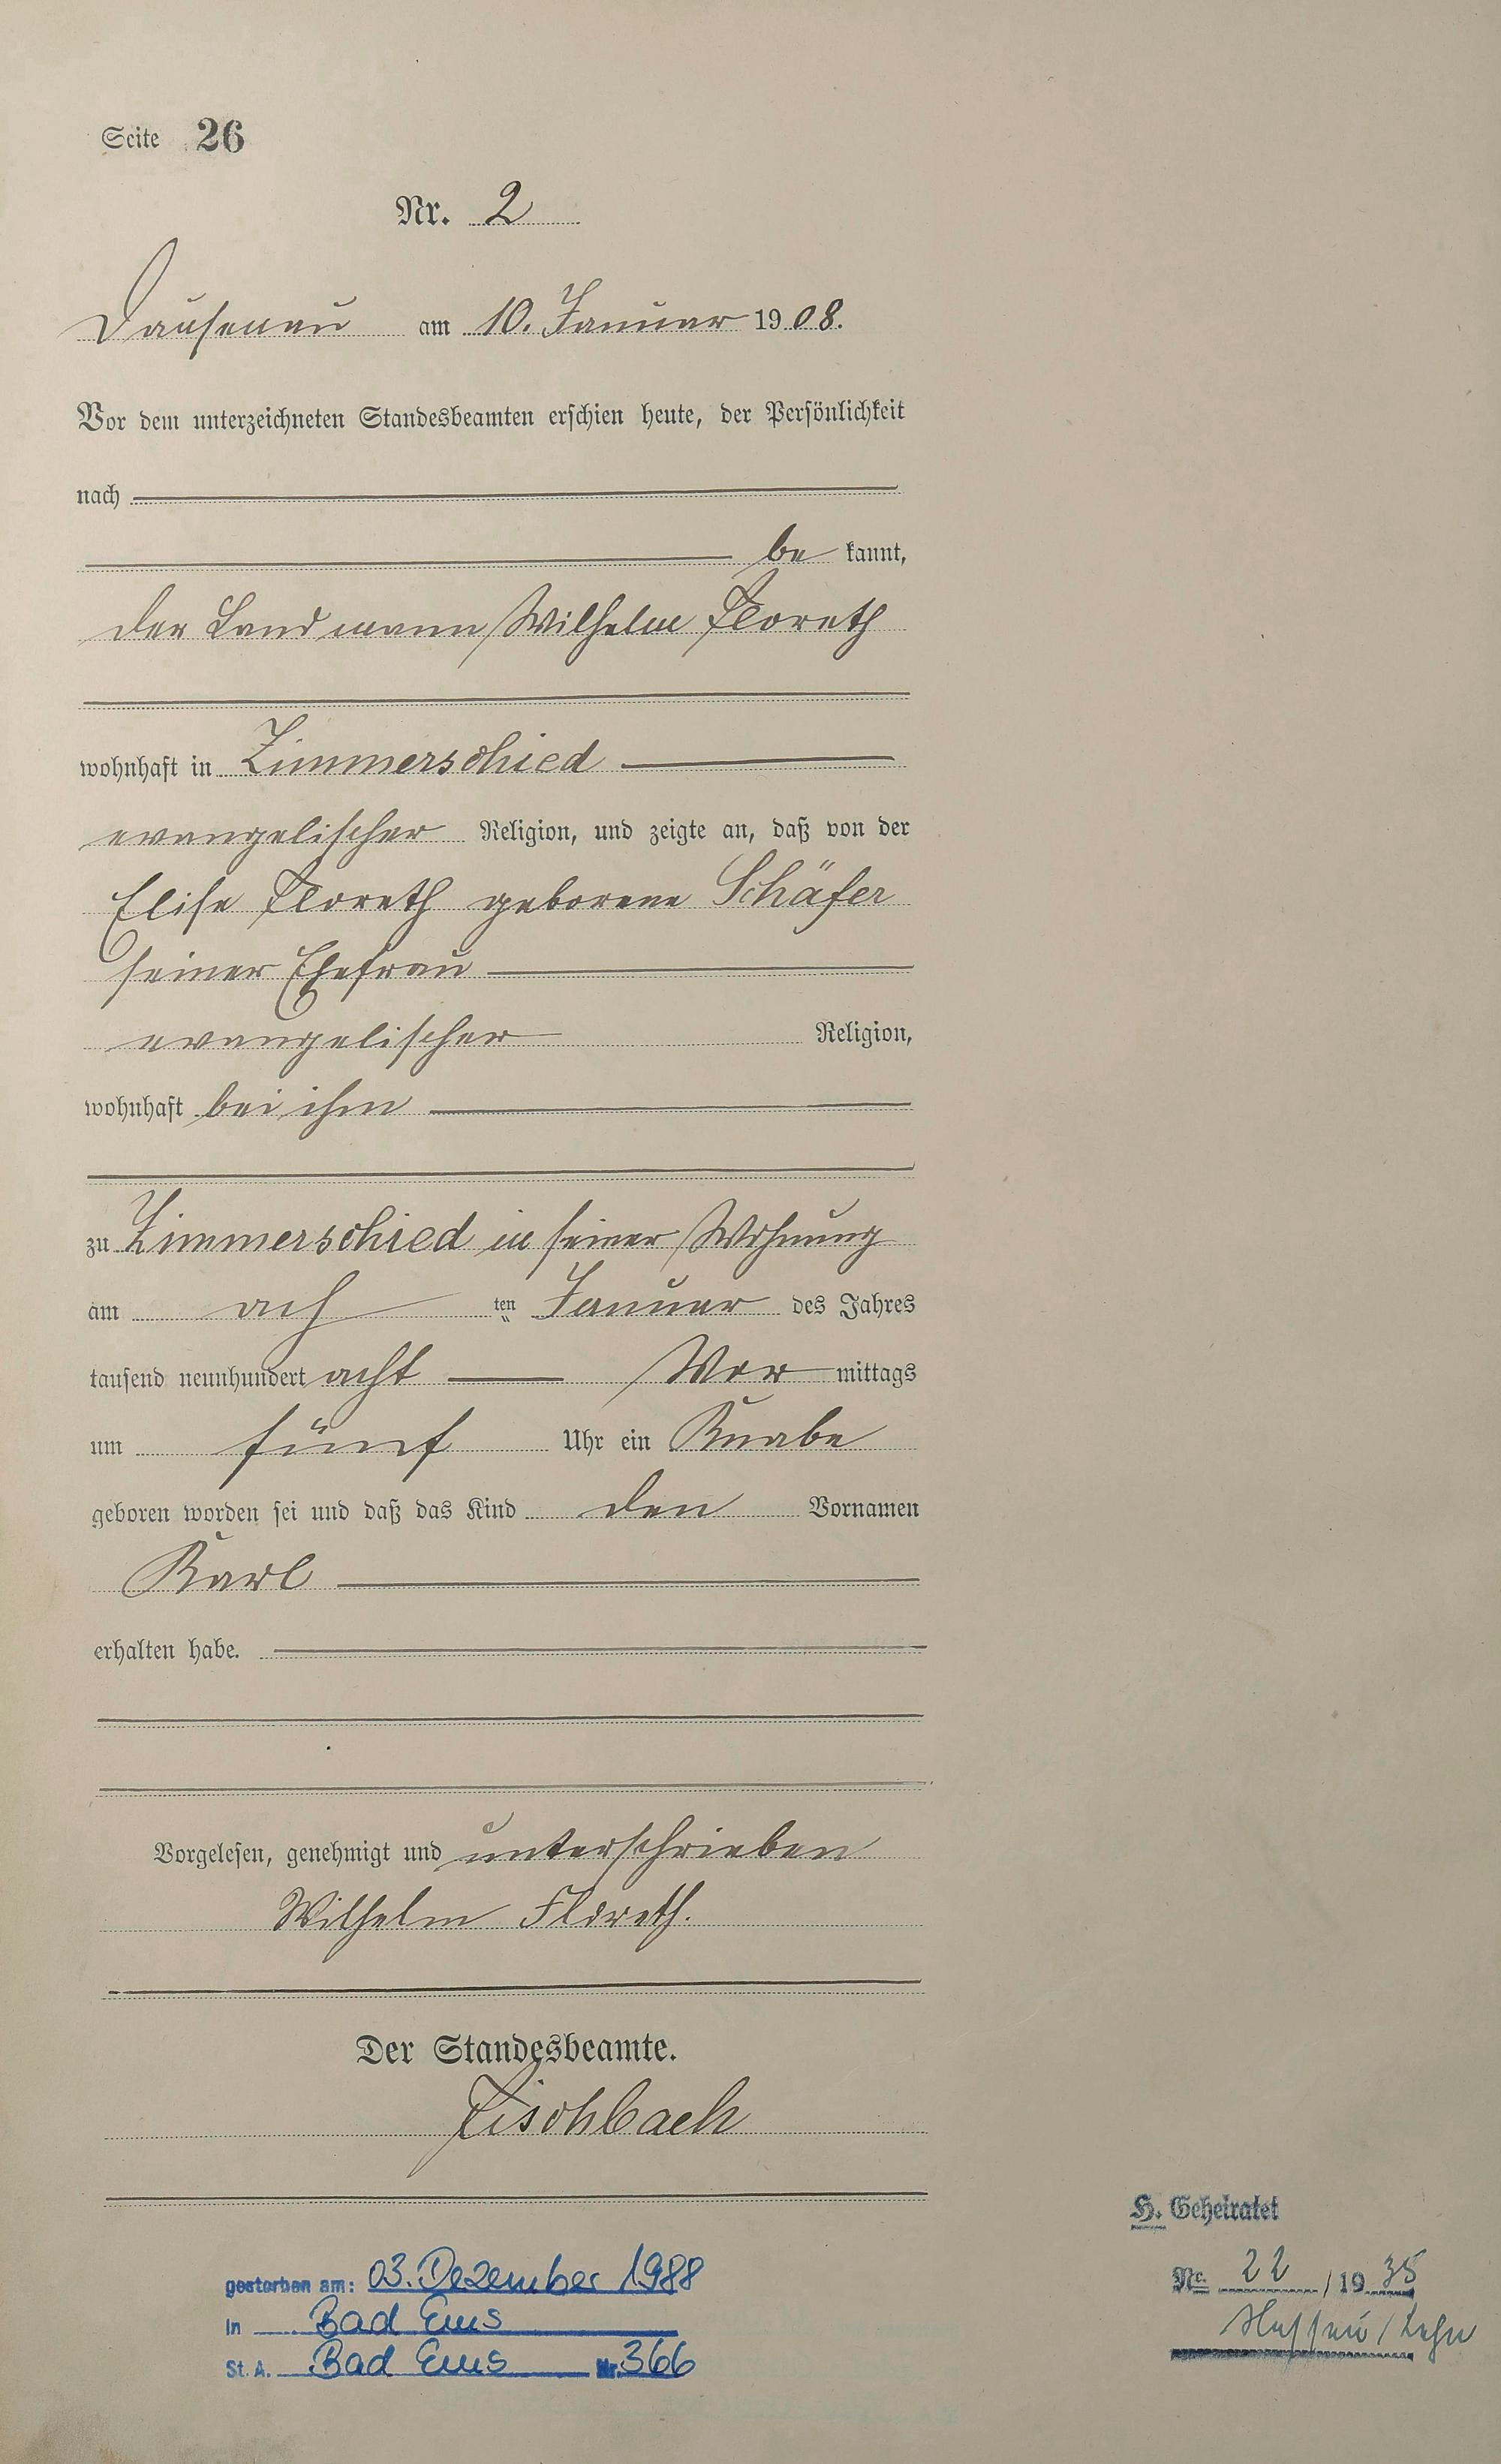 Seite 26
Nr. 2
Dausenau am 10. Januar 1908.
Vor dem unterzeichneten Standesbeamten erschien heute, der Persönlichkeit
nach
be kannt,
der Landmann Wilhelm Floreth
wohnhaft in Zimmerschied
evangelischer Religion, und zeigte an, daß von der
Elise Floreth geborene Schäfer
seiner Ehefrau
evangelischer Religion,
wohnhaft bei ihm
zu Zimmerschied in seiner Wohnung
am ach ten Januar des Jahres
tausend neunhundert acht Vor mittags
um fünf Uhr ein Knabe
geboren worden sei und daß das Kind den Vornamen
Karl
erhalten habe.
Vorgelesen, genehmigt und unterschrieben
Wilhelm Floreth.
Der Standesbeamte.
Fischbach
gestorben am: 03. Dezember 1988
in Bad Ems
St. A. Bad Ems Nr. 366
H. Geheiratet
Nr. 22 / 19 35
Nassau / Lahn